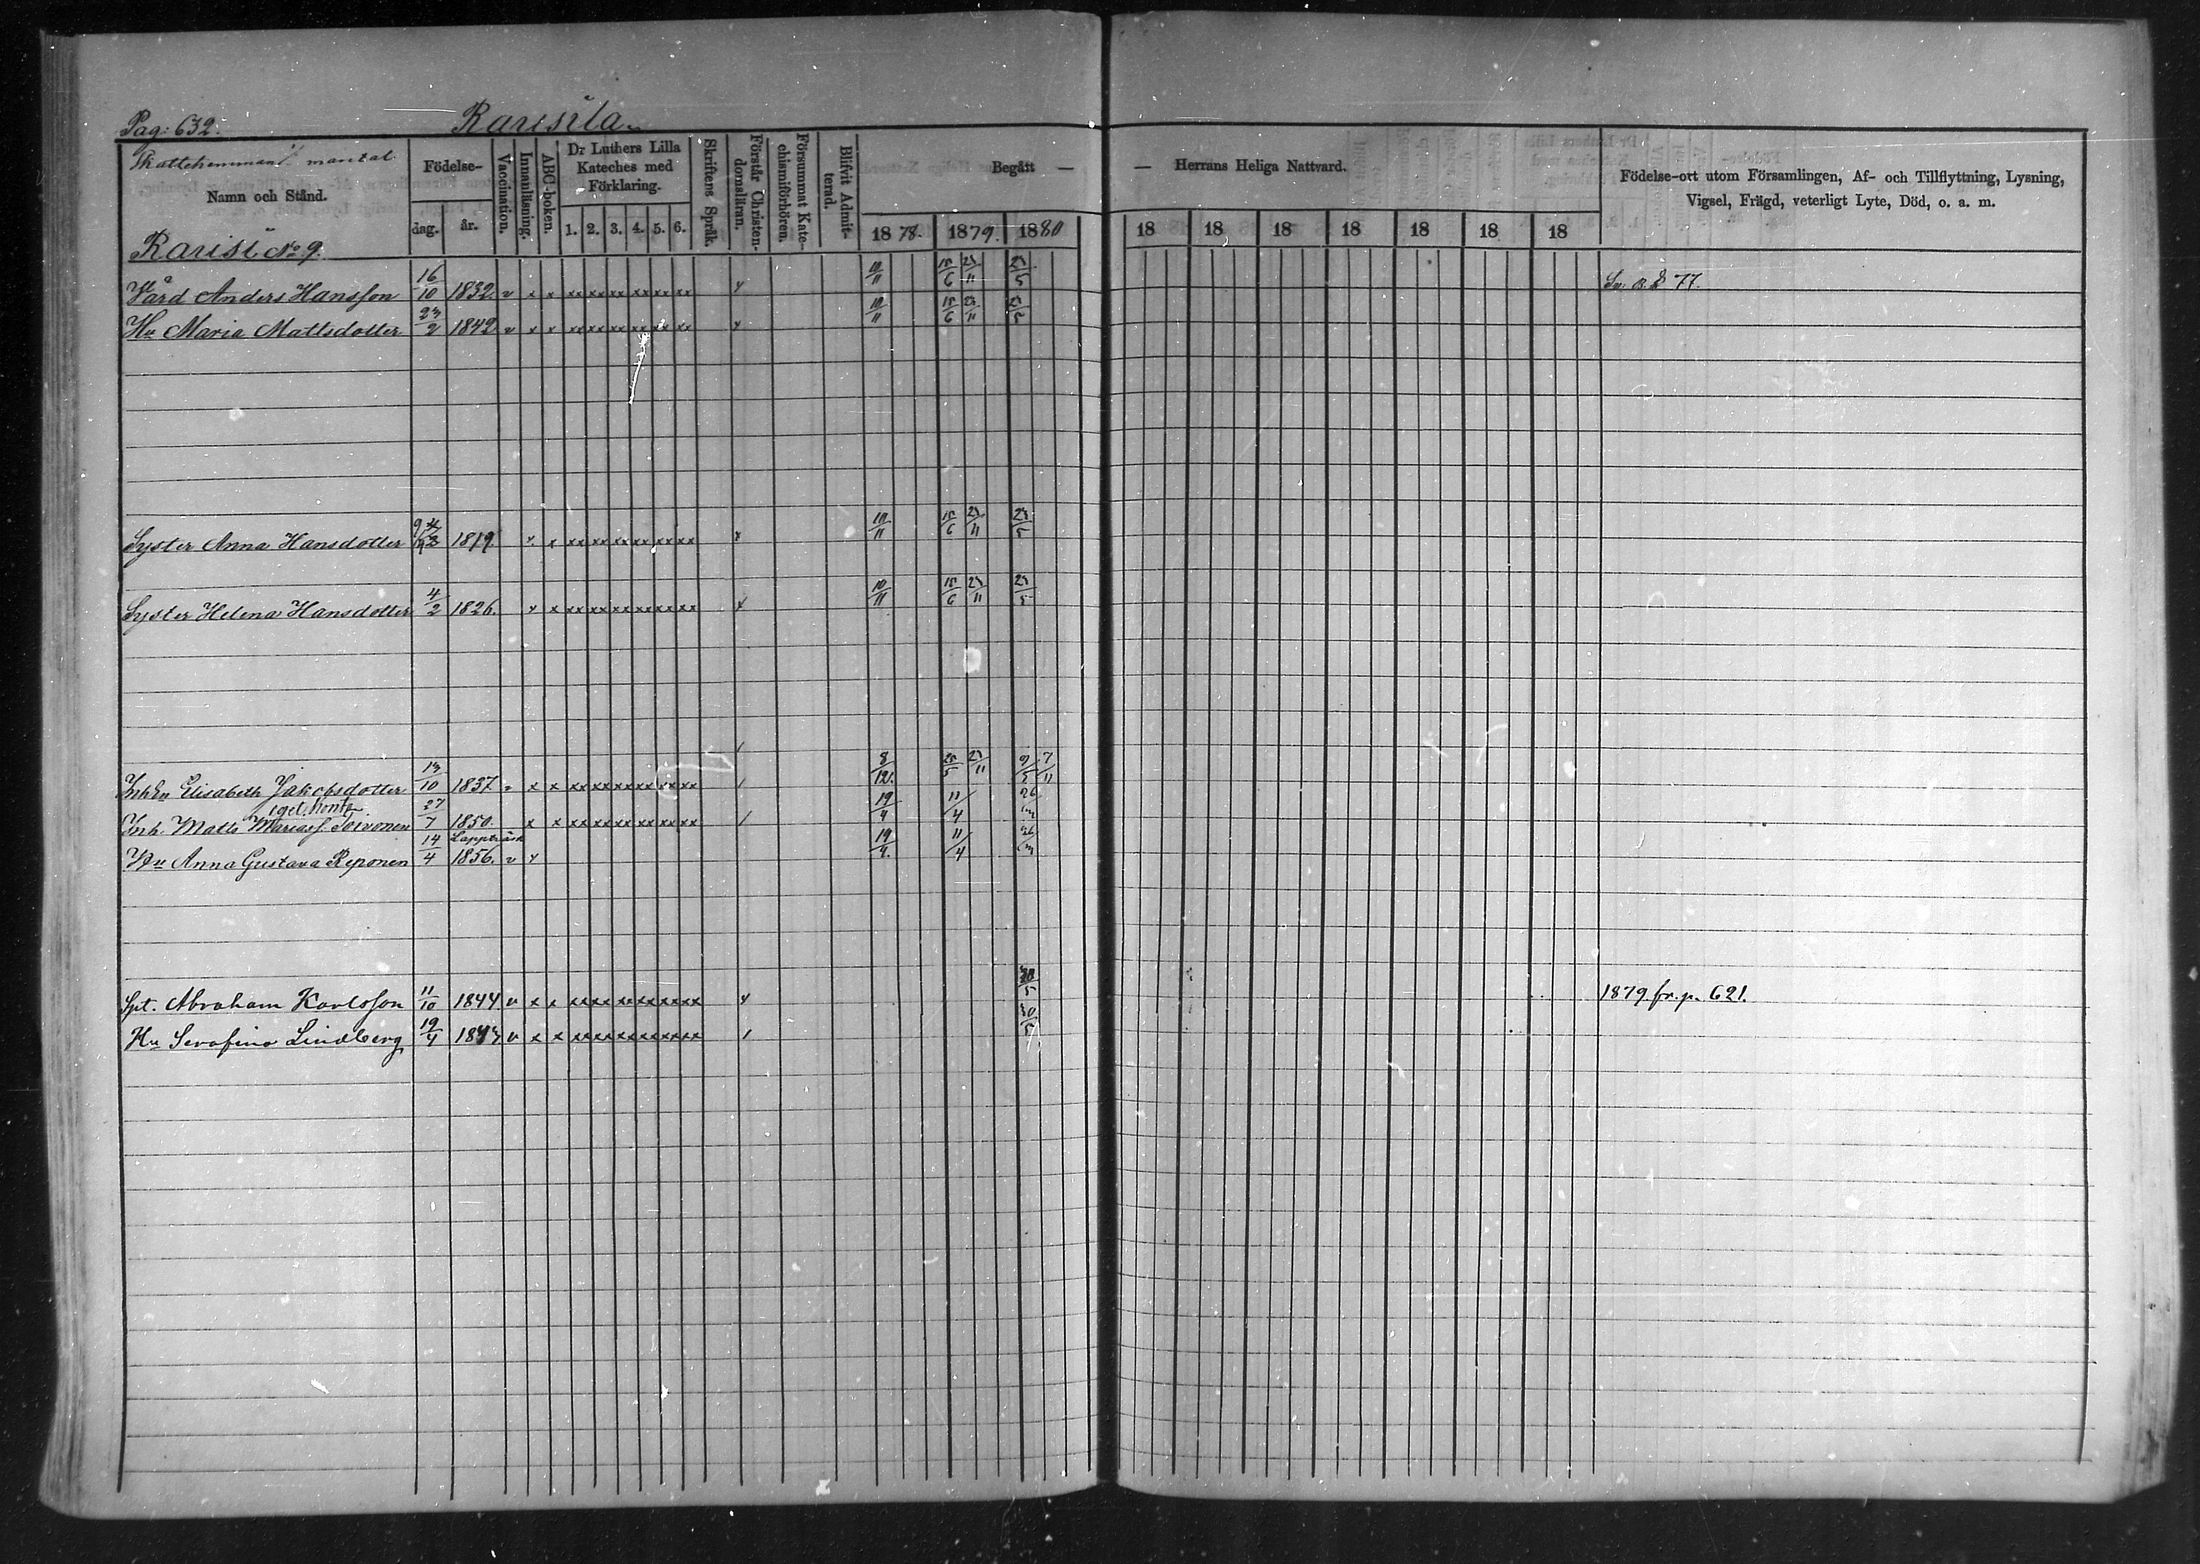 Pag: 632.
Skattehemman mantal
Namn och Stånd.
Födelse-
dag. år.
Vaccination.
Innanläsning.
ABC-boken.
Dr Luthers Lilla
Kateches med
Förklaring.
1. 2. 3. 4. 5. 6.
Skriftens Språk.
Förstår Christen-
domsläran.
Försummat Kate-
chismiförhören.
Blifvit Admit-
terad.
Begått —
1878. 1879. 1880
— Herrans Heliga Nattvard.
18 18 18 18 18 18 18
Födelse-ort utom Församlingen, Af- och Tillflyttning, Lysning,
Vigsel, Frägd, veterligt Lyte, Död, o. a. m.
No 9.
Vård Anders Hansson 16/10 1832. v x x xx xx xx xx xx xx x 10/11 15/6 23/11 23/5
77.
Hu Maria Mattsdotter 23/2 1842 v x x xx xx xx xx xx xx x 10/11 15/6 23/11 23/5
Syster Anna Hansdotter 1819. x x xx xx xx xx xx xx x 10/11 15/6 23/11 23/5
Syster Helena Hansdotter 4/2 1826. x x xx xx xx xx xx xx x 10/11 15/6 23/11 23/5
InhEn Elisabeth Jakobsdotter 13/10 1837. v x x xx xx xx xx xx xx / 8/12. 25/5 23/11 9/5 7/11
Inh. Matts Mariasf. Toivonen 27/7 1850. x x xx xx xx xx xx xx / 19/4 11/4
Lappträsk
Hu Anna Gustava Reponen 14/4 1856. v x 19/4. 11/4
Spt. Abraham Karlsson 11/10 1844 v x x xx xx xx xx xx xx x 30/5
1879. fr. p. 621.
Hu Serafina Lindberg 19/4 v x x xx xx xx xx xx xx / 30/5